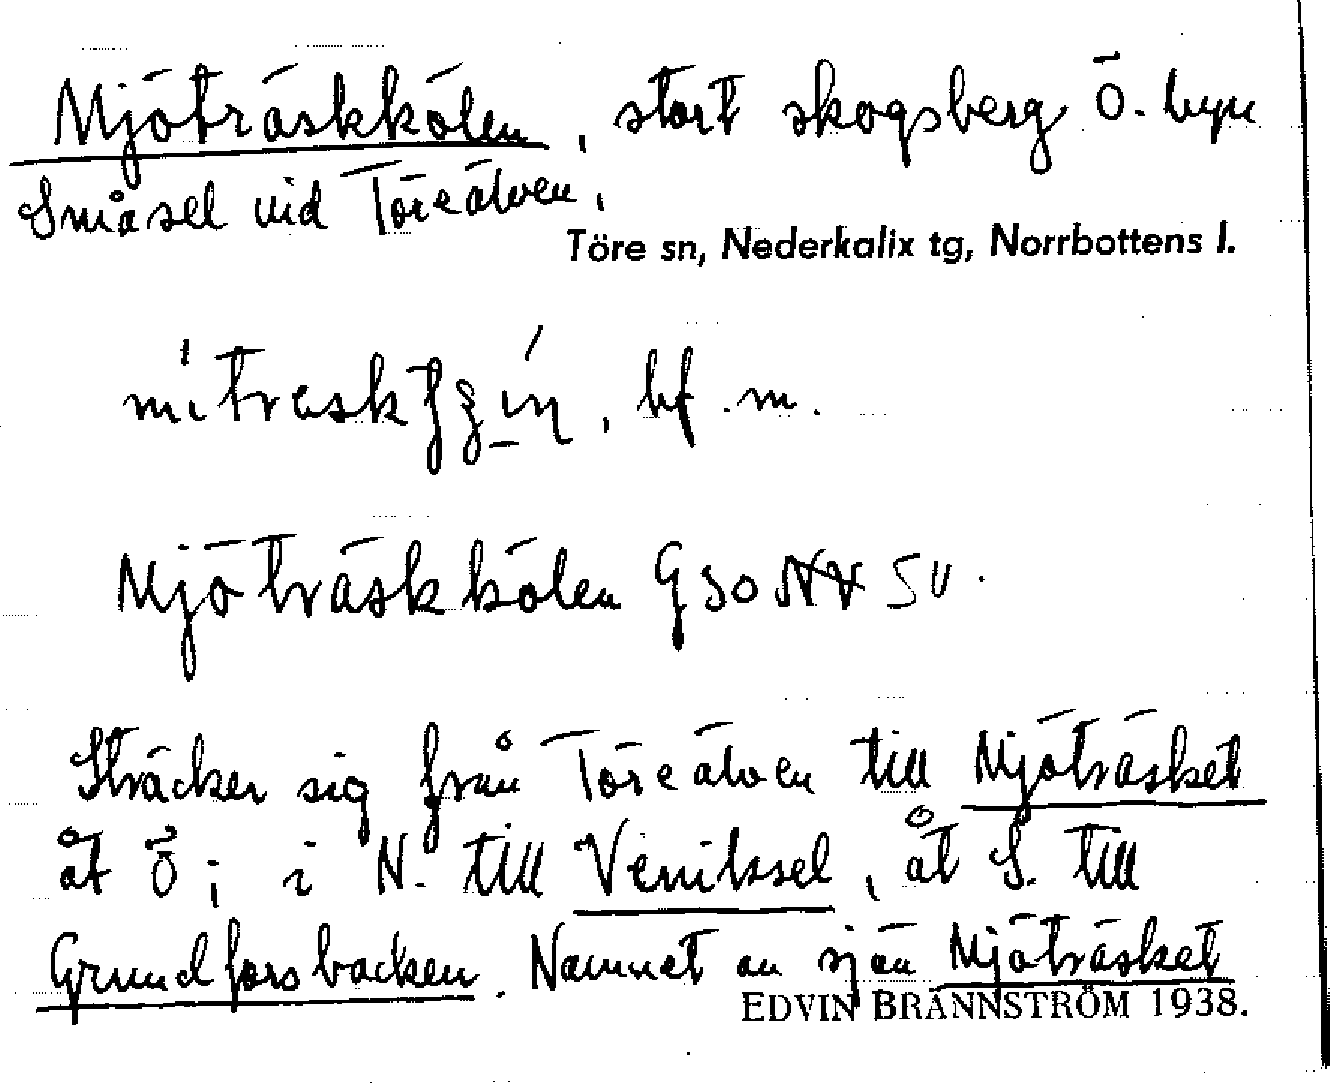 Mjöträskkölen, stort skogsberg Ö. byn
Småsel vid Töreälven,
Töre sn, Nederkalix tg, Norrbottens l.
bf. m.
Mjöträskkölen G 30 SV.
Sträcker sig från Töreälven till Mjöträsket
åt Ö; i N. till Venitssel, åt S. till
Grundforsbacken. Namnet av sjön Mjöträsket
EDVIN BRÄNNSTRÖM 1938.